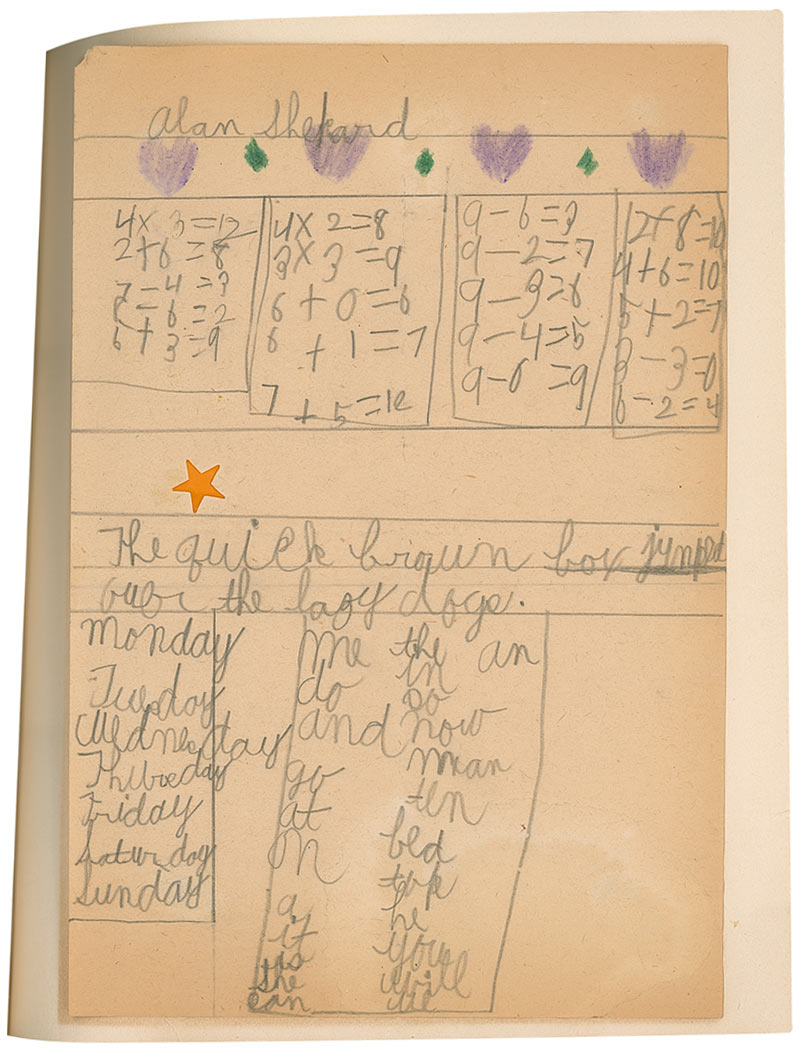 Alan Shepard
4 x 3 = 12
2 + 6 = 8
7 - 4 = 3
- 6 = 2
6 + 3 = 9
4 x 2 = 8
3 x 3 = 9
6 + 0 = 6
6 + 1 = 7
7 + 5 = 12
9 - 6 = 3
9 - 2 = 7
9 - 3 = 6
9 - 4 = 5
9 - 0 = 9
4 + 6 = 10
5 + 2 = 7
3 - 3 = 0
6 - 2 = 4
The quick brown box jumped
over the lazy dogs.
Monday
Tuesday
Wednesday
Thursday
Friday
Saturday
Sunday
me
do
and
go
at
on
a
it
is
the
can
the an
in
so
now
mean
ten
bed
he
you
will
we